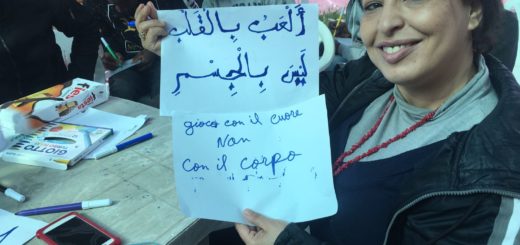 ألْعَبُ بِالْقَلْبِ
لَيْسَ بِالْجِسْمِ
gioco con il cuore
Non
con il corpo
GIOTTO